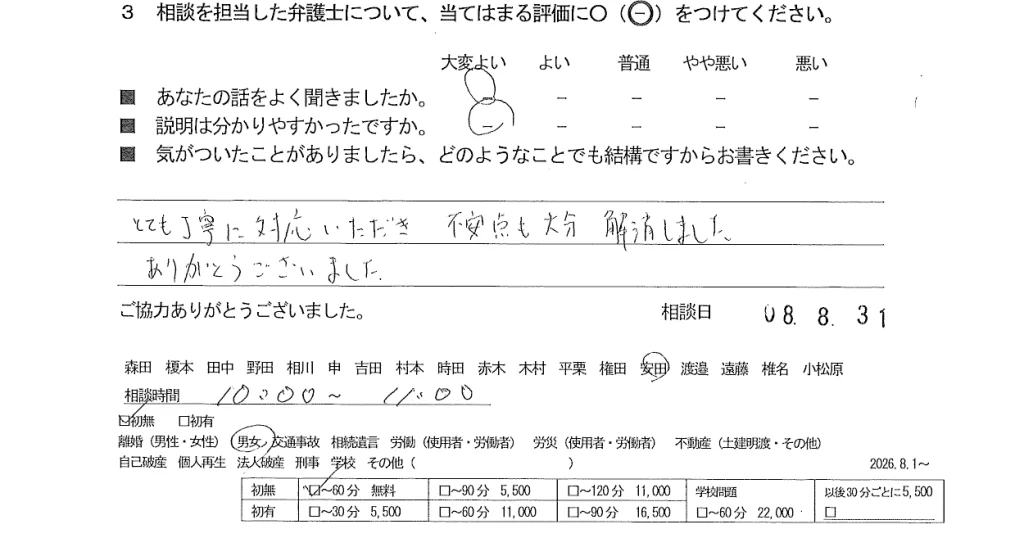 3 相談を担当した弁護士について、当てはまる評価に○（㊀）をつけてください。
大変よい よい 普通 やや悪い 悪い
■ あなたの話をよく聞きましたか。 － － － － －
■ 説明は分かりやすかったですか。 － － － － －
■ 気がついたことがありましたら、どのようなことでも結構ですからお書きください。
とても丁寧に対応いただき 不安点も大分 解消しました。
ありがとうございました。
ご協力ありがとうございました。 相談日 08. 8. 31
森田 榎本 田中 野田 相川 申 吉田 村本 時田 赤木 木村 平栗 権田 安田 渡邉 遠藤 椎名 小松原
相談時間 10:00～ 11:00
☑初無 □初有
離婚（男性・女性） 男女 交通事故 相続遺言 労働（使用者・労働者） 労災（使用者・労働者） 不動産（土建明渡・その他）
自己破産 個人再生 法人破産 刑事 学校 その他（ ） 2026.8.1～
初無 ☑～60分 無料 □～90分 5,500 □～120分 11,000 学校問題 以後30分ごとに5,500
初有 □～30分 5,500 □～60分 11,000 □～90分 16,500 □～60分 22,000 □